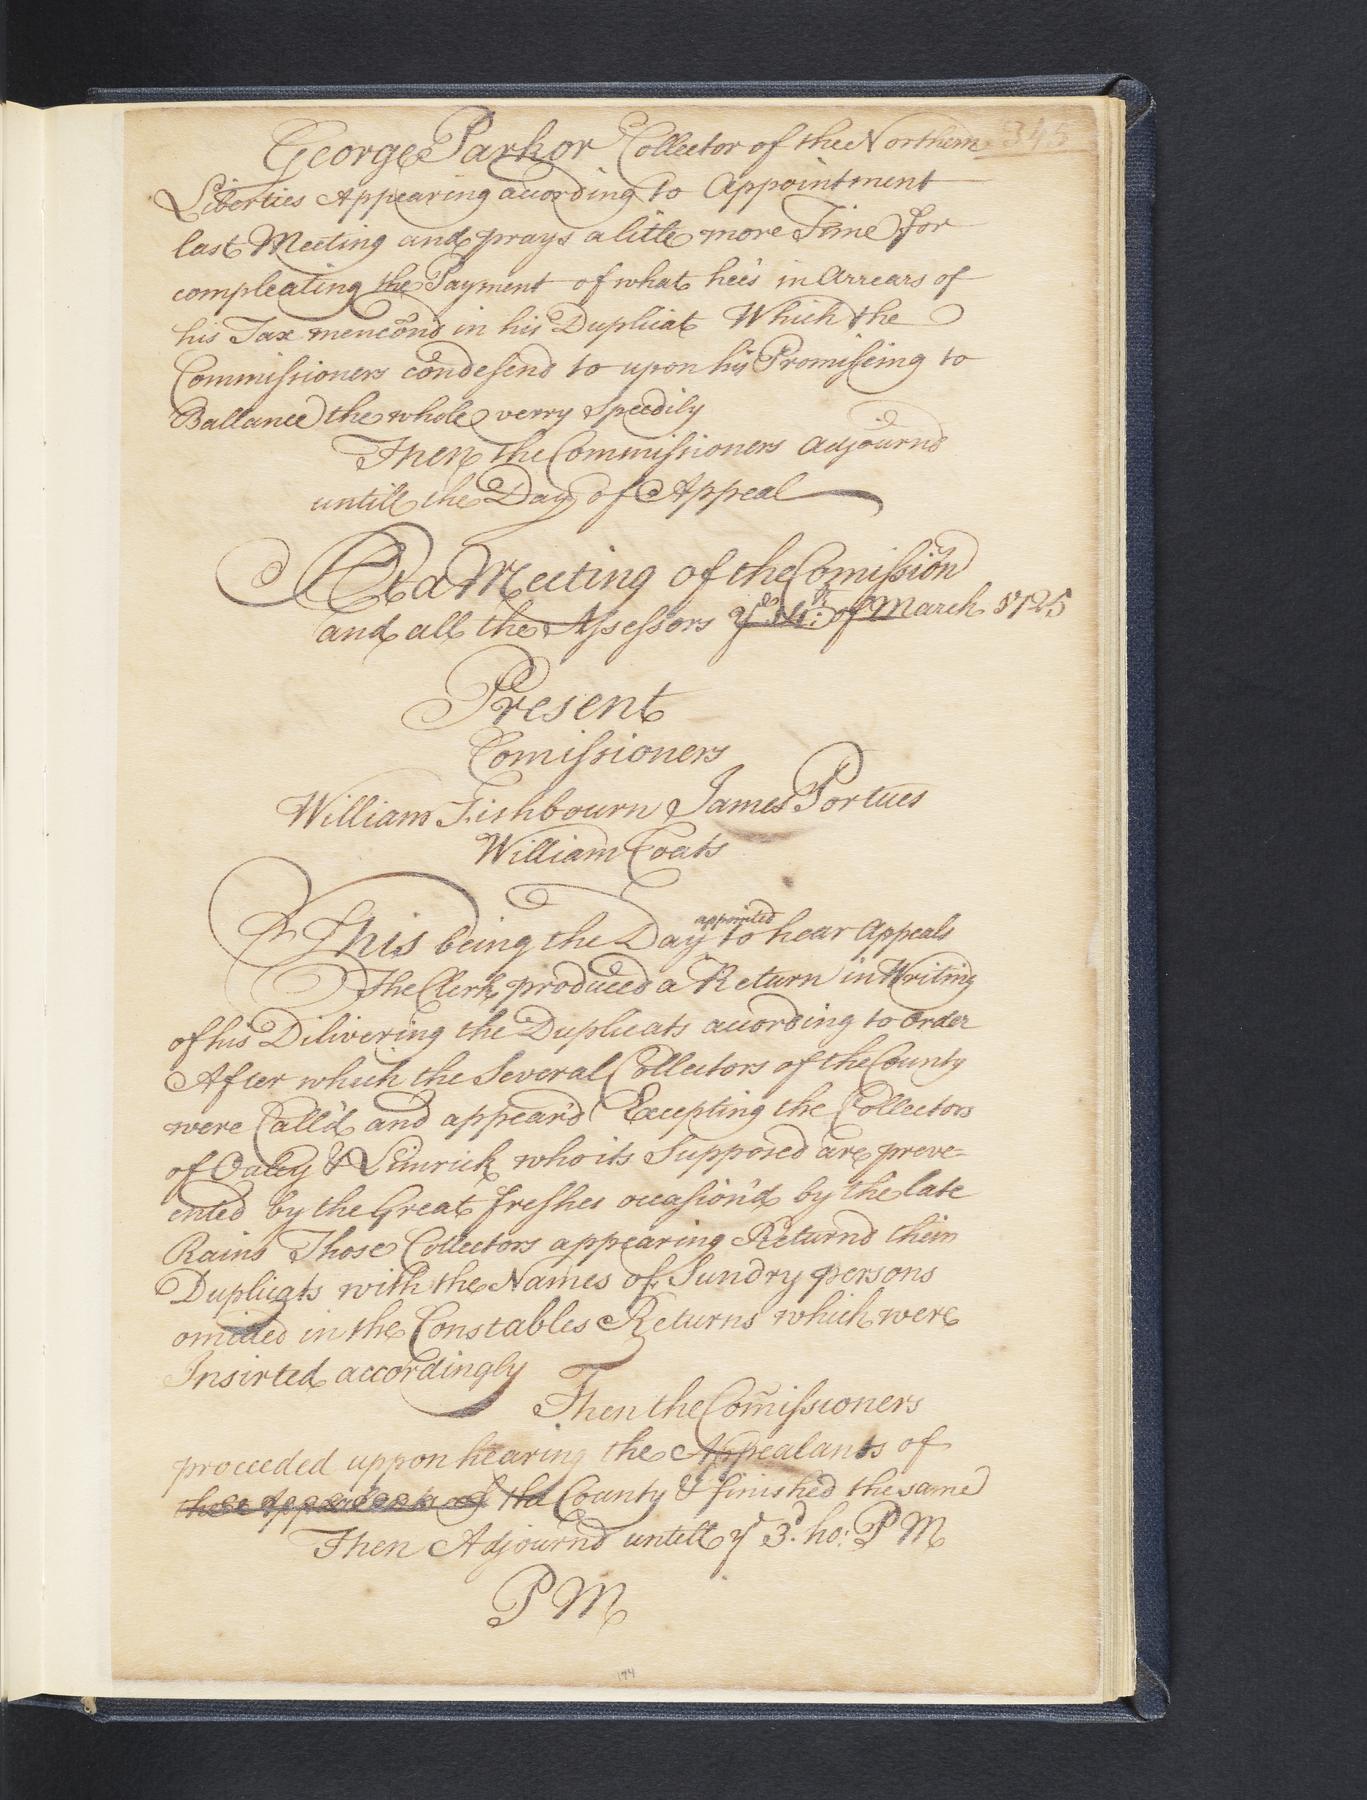 345
George Parker Collector of the Northern
Liberties Appearing according to Appointment
last Meeting and prays a litle more Time for
compleating the Payment of what hee's in Arrears of
his Tax mencõnd in his Duplicat Which the
Commissioners condesend to upon his Promissing to
Ballance the whole verry Speedily
Then the Commissioners adjournd
untill the Day of Appeal
At a Meeting of the Comission
and all the Assessors of March 1725
Present
Comissioners
William Fishbourn James Portues
William Coats
appointed
This being the Day to hear Appeals
The Clerk produced a Return in Writing
of his Dilivering the Duplicats according to Order
After which the Several Collectors of the County
were Call'd and appear'd Excepting the Collectors
of Oaley & Limrick who its Supposed are preve=
ented by the Great freshes occasion'd by the late
Rains Those Collectors appearing Returnd their
Duplicats with the Names of Sundry persons
omitted in the Constables Returns which were
Insirted accordingly
Then the Com̃issioners
proceeded uppon hearing the Appealants of
the County & finished the same
Then Adjournd untill yᵉ 3ᵈ. ho: P M
P M
174